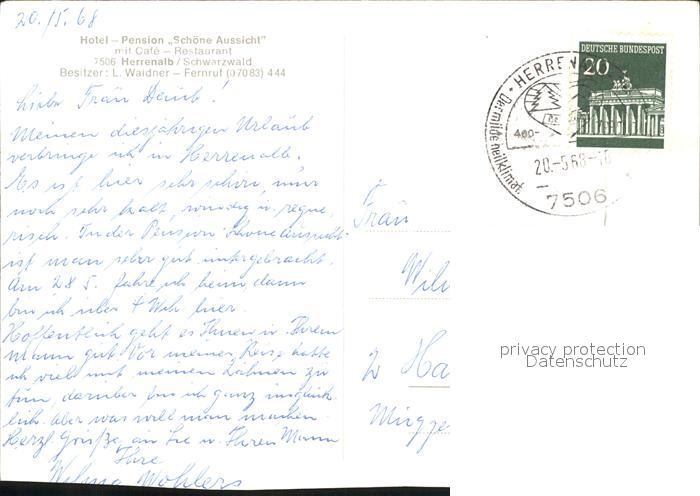 20./5.68
Hotel – Pension „Schöne Aussicht"
mit Café – Restaurant
7506 Herrenalb / Schwarzwald
Besitzer: L. Waidner – Fernruf (07083) 444
Liebe Frau Deub!
Meinen diesjährigen Urlaub
verbringe ich in Herrenalb.
Es ist hier sehr schön, nur
noch sehr kalt, windig u. regne-
risch. In der Pension Schöne Aussicht
ist man sehr gut untergebracht.
Am 28 5. fahre ich heim, dann
bin ich über 4 Wch hier.
Hoffentlich geht es Ihnen u. Ihrem
Mann gut. Vor meiner Reise hatte
ich viel mit meinen Zähnen zu
tun, darüber bin ich ganz unglück-
lich. Aber was will man machen.
Herzl. Grüße, an Sie u. Ihren Mann
Ihre
Wilma Wohlers
DEUTSCHE BUNDESPOST
20
HERREN
Der milde heilklimat.
400-
20.-5.68-16
7506
Frau
2 Ha
privacy protection
Datenschutz